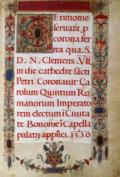 Cerimonie
seruate, p
corona ser
ta qua S.
D. N. Clemens. VII.
in die cathedre sācti
Petri Coronauit Ca
rolum Quintum Ro
manorum Imperato
rem electum ī Ciuita
te Bononie ī Capella
palatij applici. 1530